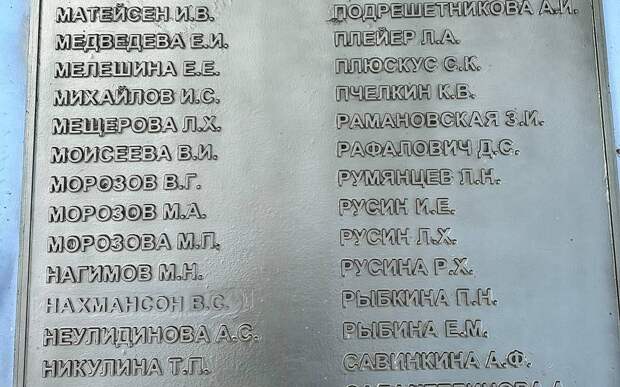 МАТЕЙСЕН И.В.
МЕДВЕДЕВА Е.И.
МЕЛЕШИНА Е.Е.
МИХАЙЛОВ И.С.
МЕЩЕРОВА Л.Х.
МОИСЕЕВА В.И.
МОРОЗОВ В.Г.
МОРОЗОВ М.А.
МОРОЗОВА М.П.
НАГИМОВ М.Н.
НАХМАНСОН В.С.
НЕУЛИДИНОВА А.С.
НИКУЛИНА Т.П.
ПОДРЕШЕТНИКОВА А.И.
ПЛЕЙЕР Л.А.
ПЛЮСКУС С.К.
ПЧЕЛКИН К.В.
РАМАНОВСКАЯ З.И.
РАФАЛОВИЧ Д.С.
РУМЯНЦЕВ Л.Н.
РУСИН И.Е.
РУСИН Л.Х.
РУСИНА Р.Х.
РЫБКИНА П.Н.
РЫБИНА Е.М.
САВИНКИНА А.Ф.